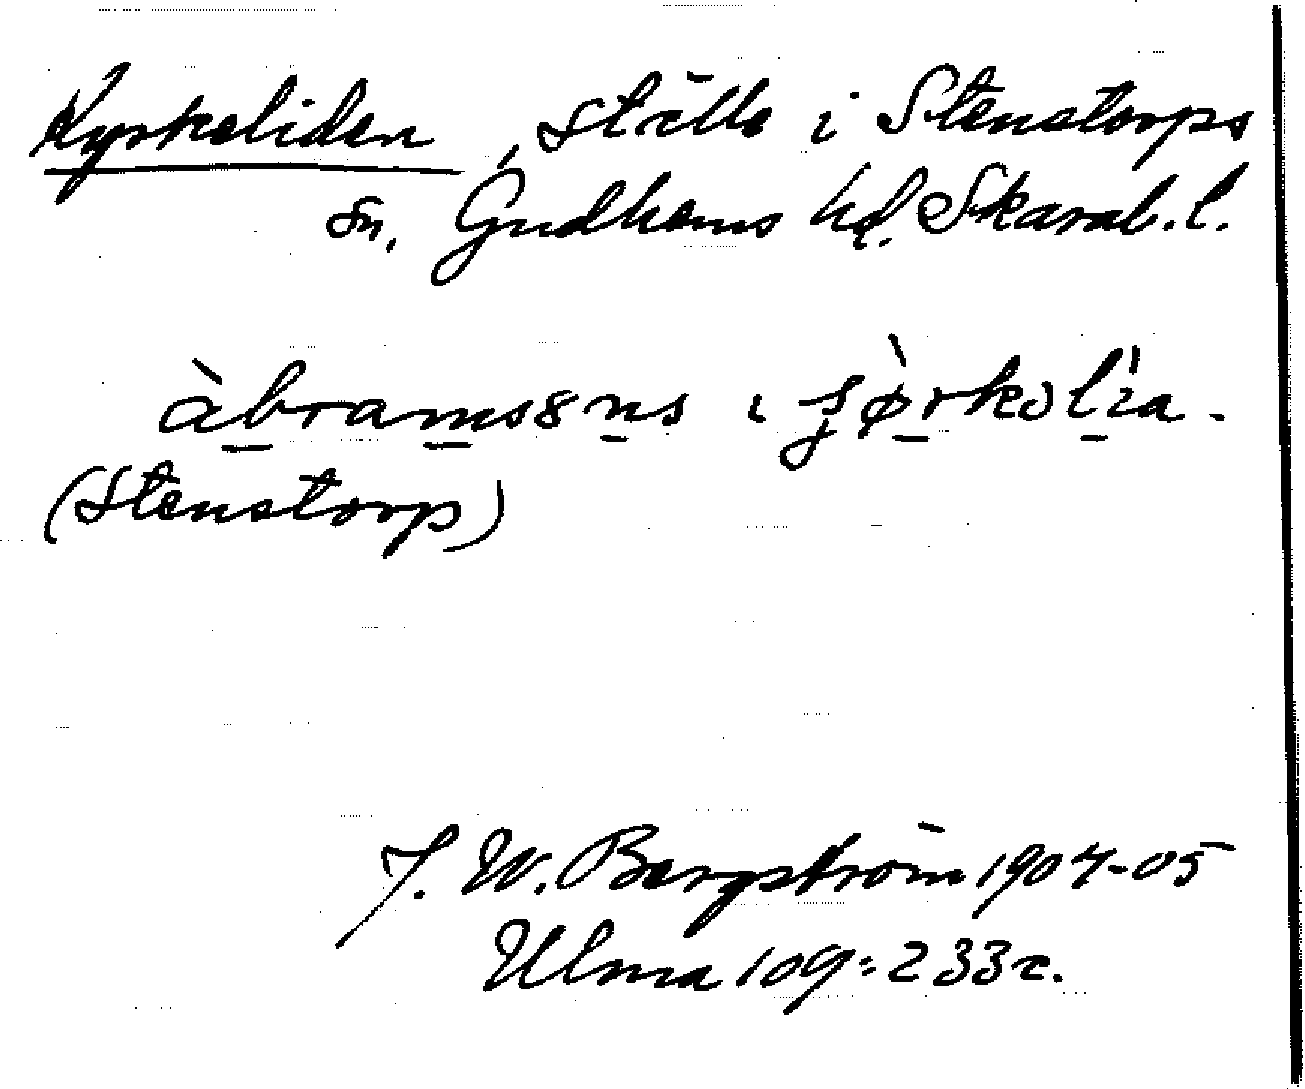 Kyrkeliden, ställe i Stenstorps
sn, Gudhems hd. Skarab. l.
àbramsɜns ɩ ʂø̀rkɔlia.
(Stenstorp)
J. W. Bergström 1904-05
Ulma 109:233c.